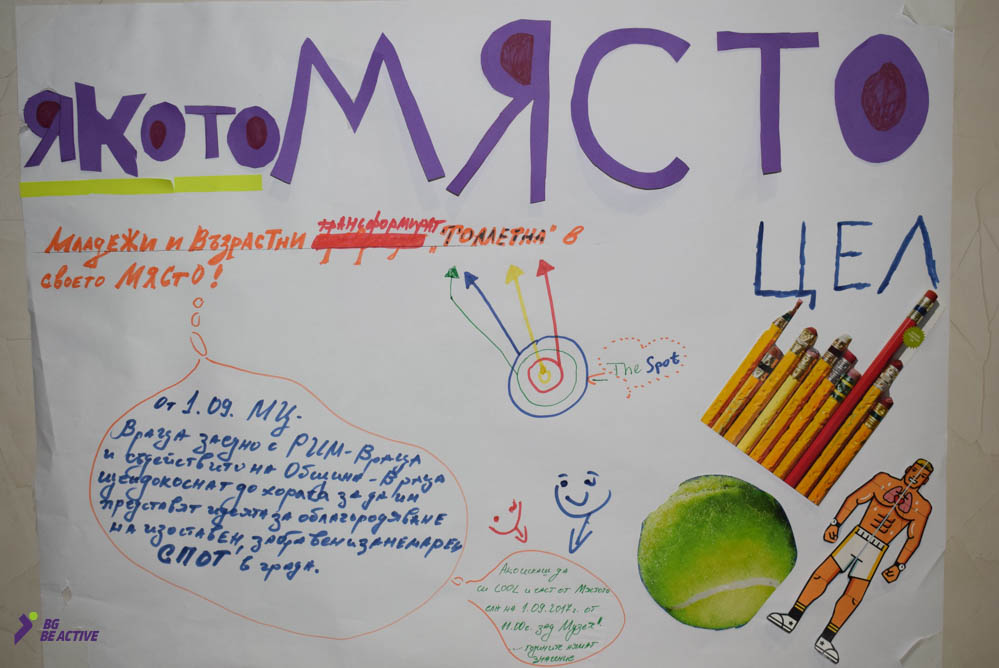 ЯКОТО МЯСТО
МЛАДЕЖИ И ВЪЗРАСТНИ ТРАНСФОРМИРАТ „ТОЛЛЕТНА" В
СВОЕТО МЯСТО!
ЦЕЛ
The Spot
от 1.09. МЦ.
Враца заедно с РИМ-Враца
и съдействието на Община-Враца
ще докоснат до хората за да им
представят идеята за облагородяване
на изоставен, забравен и занемарен
СПОТ в града.
Ако искаш да
си COOL и част от Мястото
ела на 1.09.2017г. от
11.00ч. зад Музея
годините нямат
значение
BG
BE ACTIVE